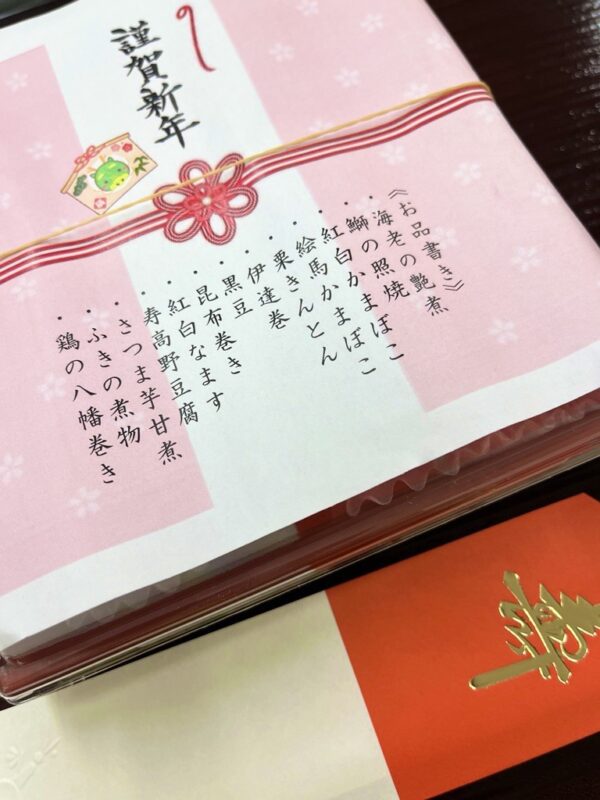 謹賀新年
《お品書き》
・海老の艶煮
・鰤の照焼
・紅白かまぼこ
・絵馬かまぼこ
・栗きんとん
・伊達巻
・黒豆
・昆布巻き
・紅白なます
・寿高野豆腐
・さつま芋甘煮
・ふきの煮物
・鶏の八幡巻き
寿